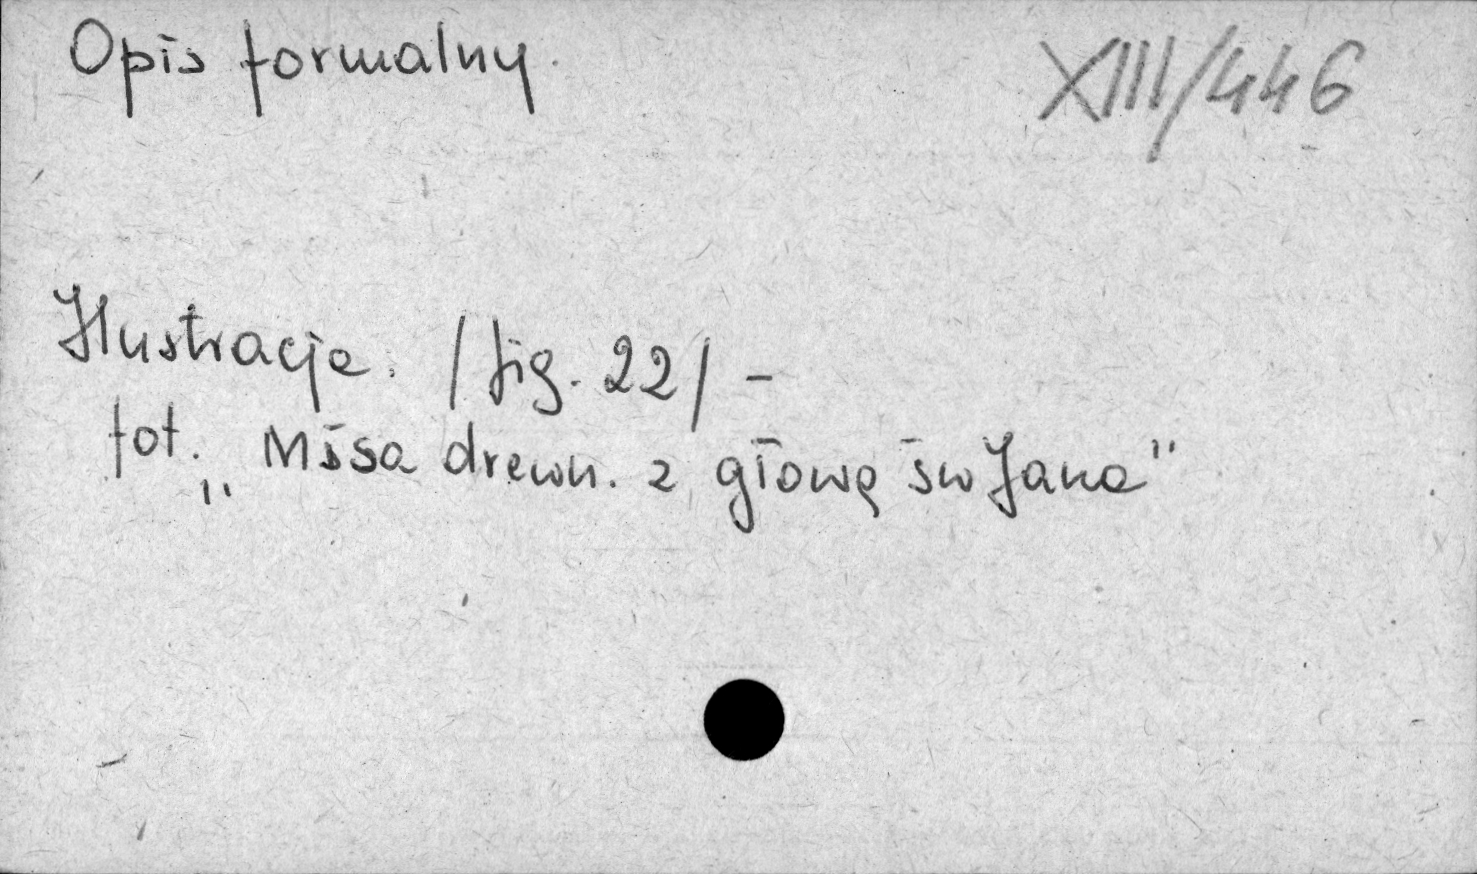 Opis formalny.
XIII/446
Ilustracje. /fig. 22/ -
fot. „Misa drewn. z głową św Jana"